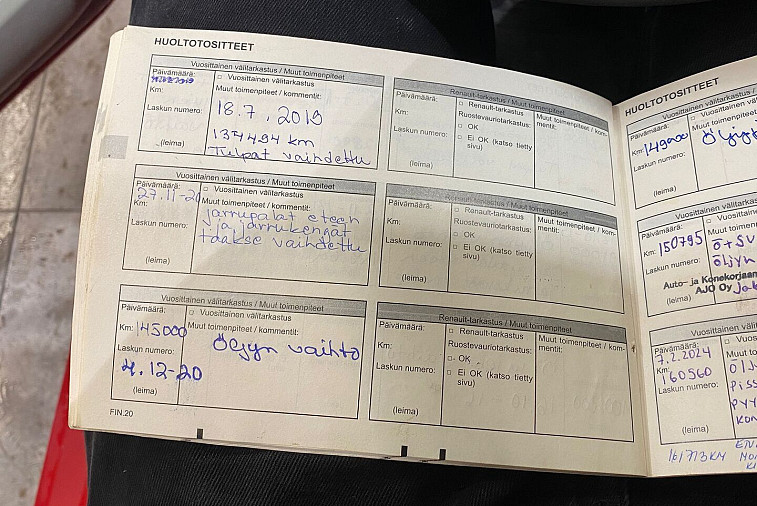 HUOLTOTOSITTEET
Vuosittainen välitarkastus / Muut toimenpiteet
Päivämäärä:
□ Vuosittainen välitarkastus
Km:
Muut toimenpiteet / kommentit:
Laskun numero:
18.7.2019
137494 km
Tulpat vaihdettu
(leima)
Renault-tarkastus / Muut toimenpiteet
Päivämäärä:
Km:
Laskun numero:
(leima)
□ Renault-tarkastus
Ruostevauriotarkastus:
□ OK
□ Ei OK (katso tietty sivu)
Muut toimenpiteet / kom-
mentit:
Vuosittainen välitarkastus / Muut toimenpiteet
Päivämäärä:
27.11-20
□ Vuosittainen välitarkastus
Km:
Muut toimenpiteet / kommentit:
Laskun numero:
jarrupalat eteen
ja jarrukengät
taakse vaihdettu
(leima)
Renault-tarkastus / Muut toimenpiteet
Päivämäärä:
Km:
Laskun numero:
(leima)
□ Renault-tarkastus
Ruostevauriotarkastus:
□ OK
□ Ei OK (katso tietty
sivu)
Muut toimenpiteet / kom-
mentit:
Vuosittainen välitarkastus / Muut toimenpiteet
Päivämäärä:
□ Vuosittainen välitarkastus
Km: 145000
Muut toimenpiteet / kommentit:
Laskun numero:
Öljyn vaihto
4.12-20
(leima)
Renault-tarkastus / Muut toimenpiteet
Päivämäärä:
Km:
Laskun numero:
(leima)
□ Renault-tarkastus
Ruostevauriotarkastus:
□ OK
□ Ei OK (katso tietty
sivu)
Muut toimenpiteet / kom-
mentit:
FIN.20
HUOLTOTOSITTEET
Vuosittainen vä
Päivämäärä:
Km: 149000
Laskun numero:
(leima)
Vuosittainen
Päivämäärä:
Km: 150795
Ö+SU
Laskun numero:
öljyn
Auto- ja Konekorjaam
AJO Oy
(leima)
Vuosittainen väli
Päivämäärä:
7.2.2024
Km:
160560
Laskun numero:
(leima)
161713KM